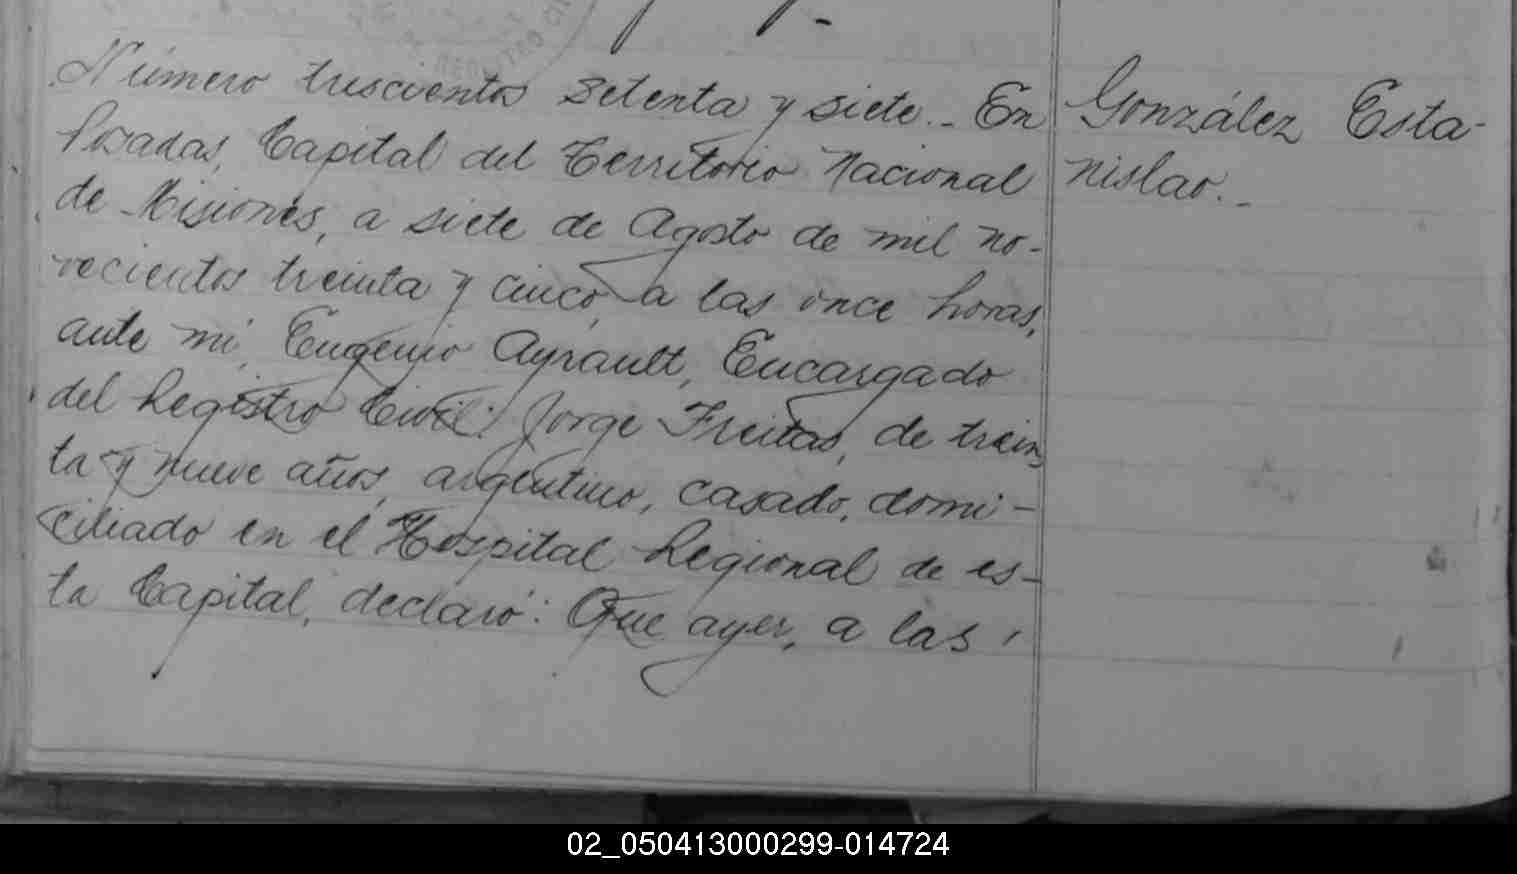 Número trescientos setenta y siete.- En
Posadas, Capital del Territorio Nacional
de Misiones, a siete de Agosto de mil no-
vecientos treinta y cinco, a las once horas,
ante mí, Eugenio Ayrault, Encargado
del Registro Civil: Jorge Freitas, de trein
ta y nueve años, argentino, casado, domi-
ciliado en el Hospital Regional de es-
ta Capital, declaró: Que ayer, a las
González Esta-
nislao.-
02_050413000299-014724